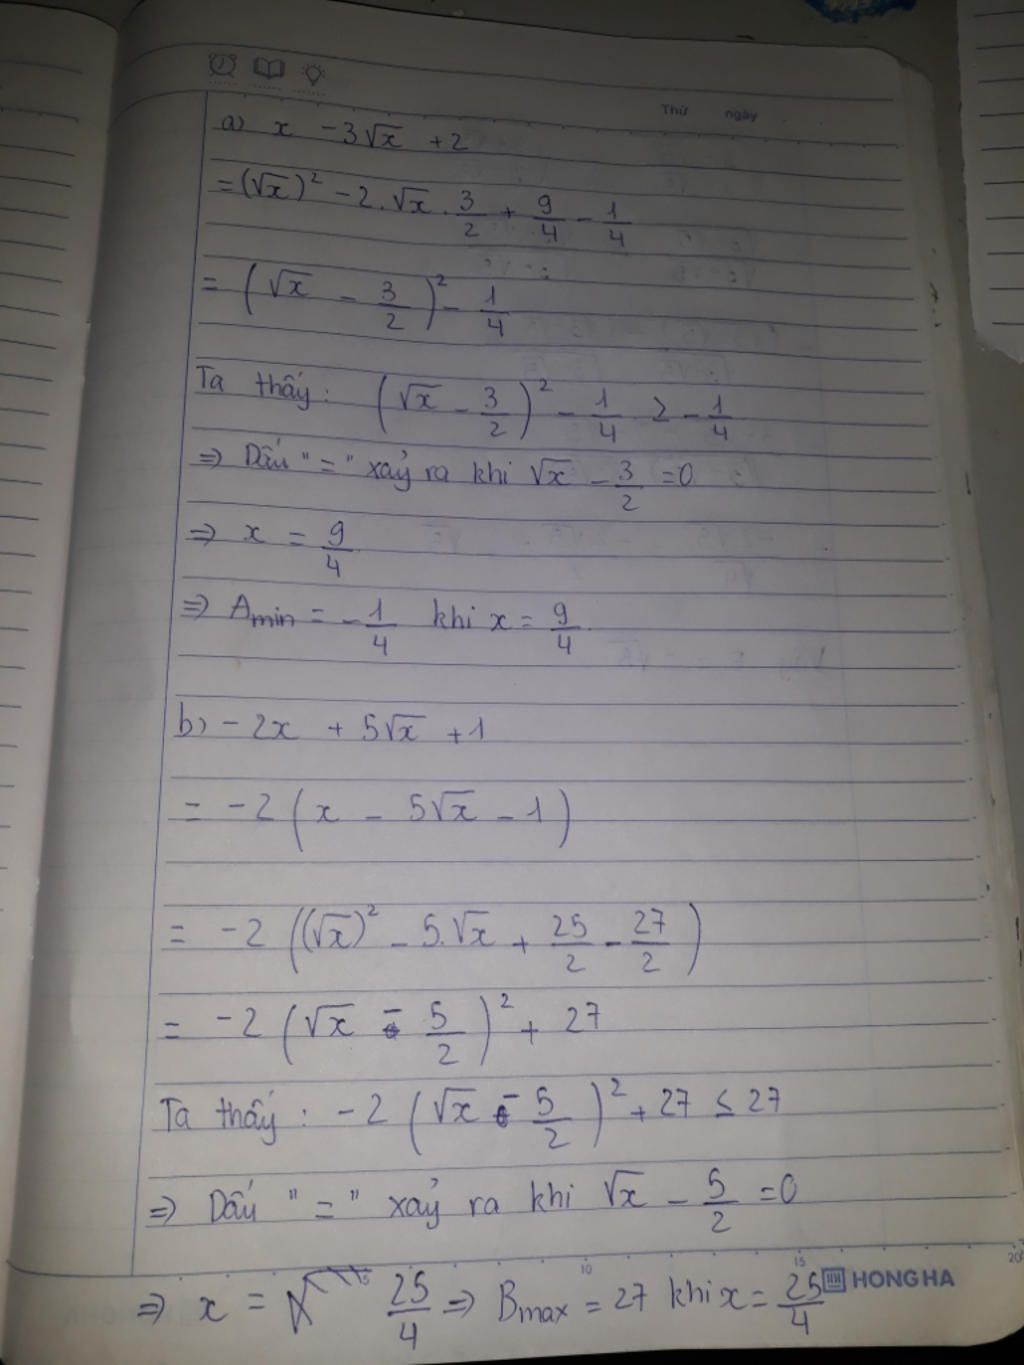 Thứ ngày
a) x - 3√x + 2
= (√x)² - 2.√x.3/2 + 9/4 - 1/4
= (√x - 3/2)² - 1/4
Ta thấy: (√x - 3/2)² - 1/4 ≥ -1/4
⇒ Dấu "=" xảy ra khi √x - 3/2 = 0
⇒ x = 9/4
⇒ Amin = -1/4 khi x = 9/4
b) -2x + 5√x + 1
= -2(x - 5√x - 1)
= -2((√x)² - 5.√x + 25/2 - 27/2)
= -2(√x - 5/2)² + 27
Ta thấy: -2(√x - 5/2)² + 27 ≤ 27
⇒ Dấu "=" xảy ra khi √x - 5/2 = 0
5 10 15 20
⇒ x = 25/4 ⇒ Bmax = 27 khi x = 25/4
HONG HA